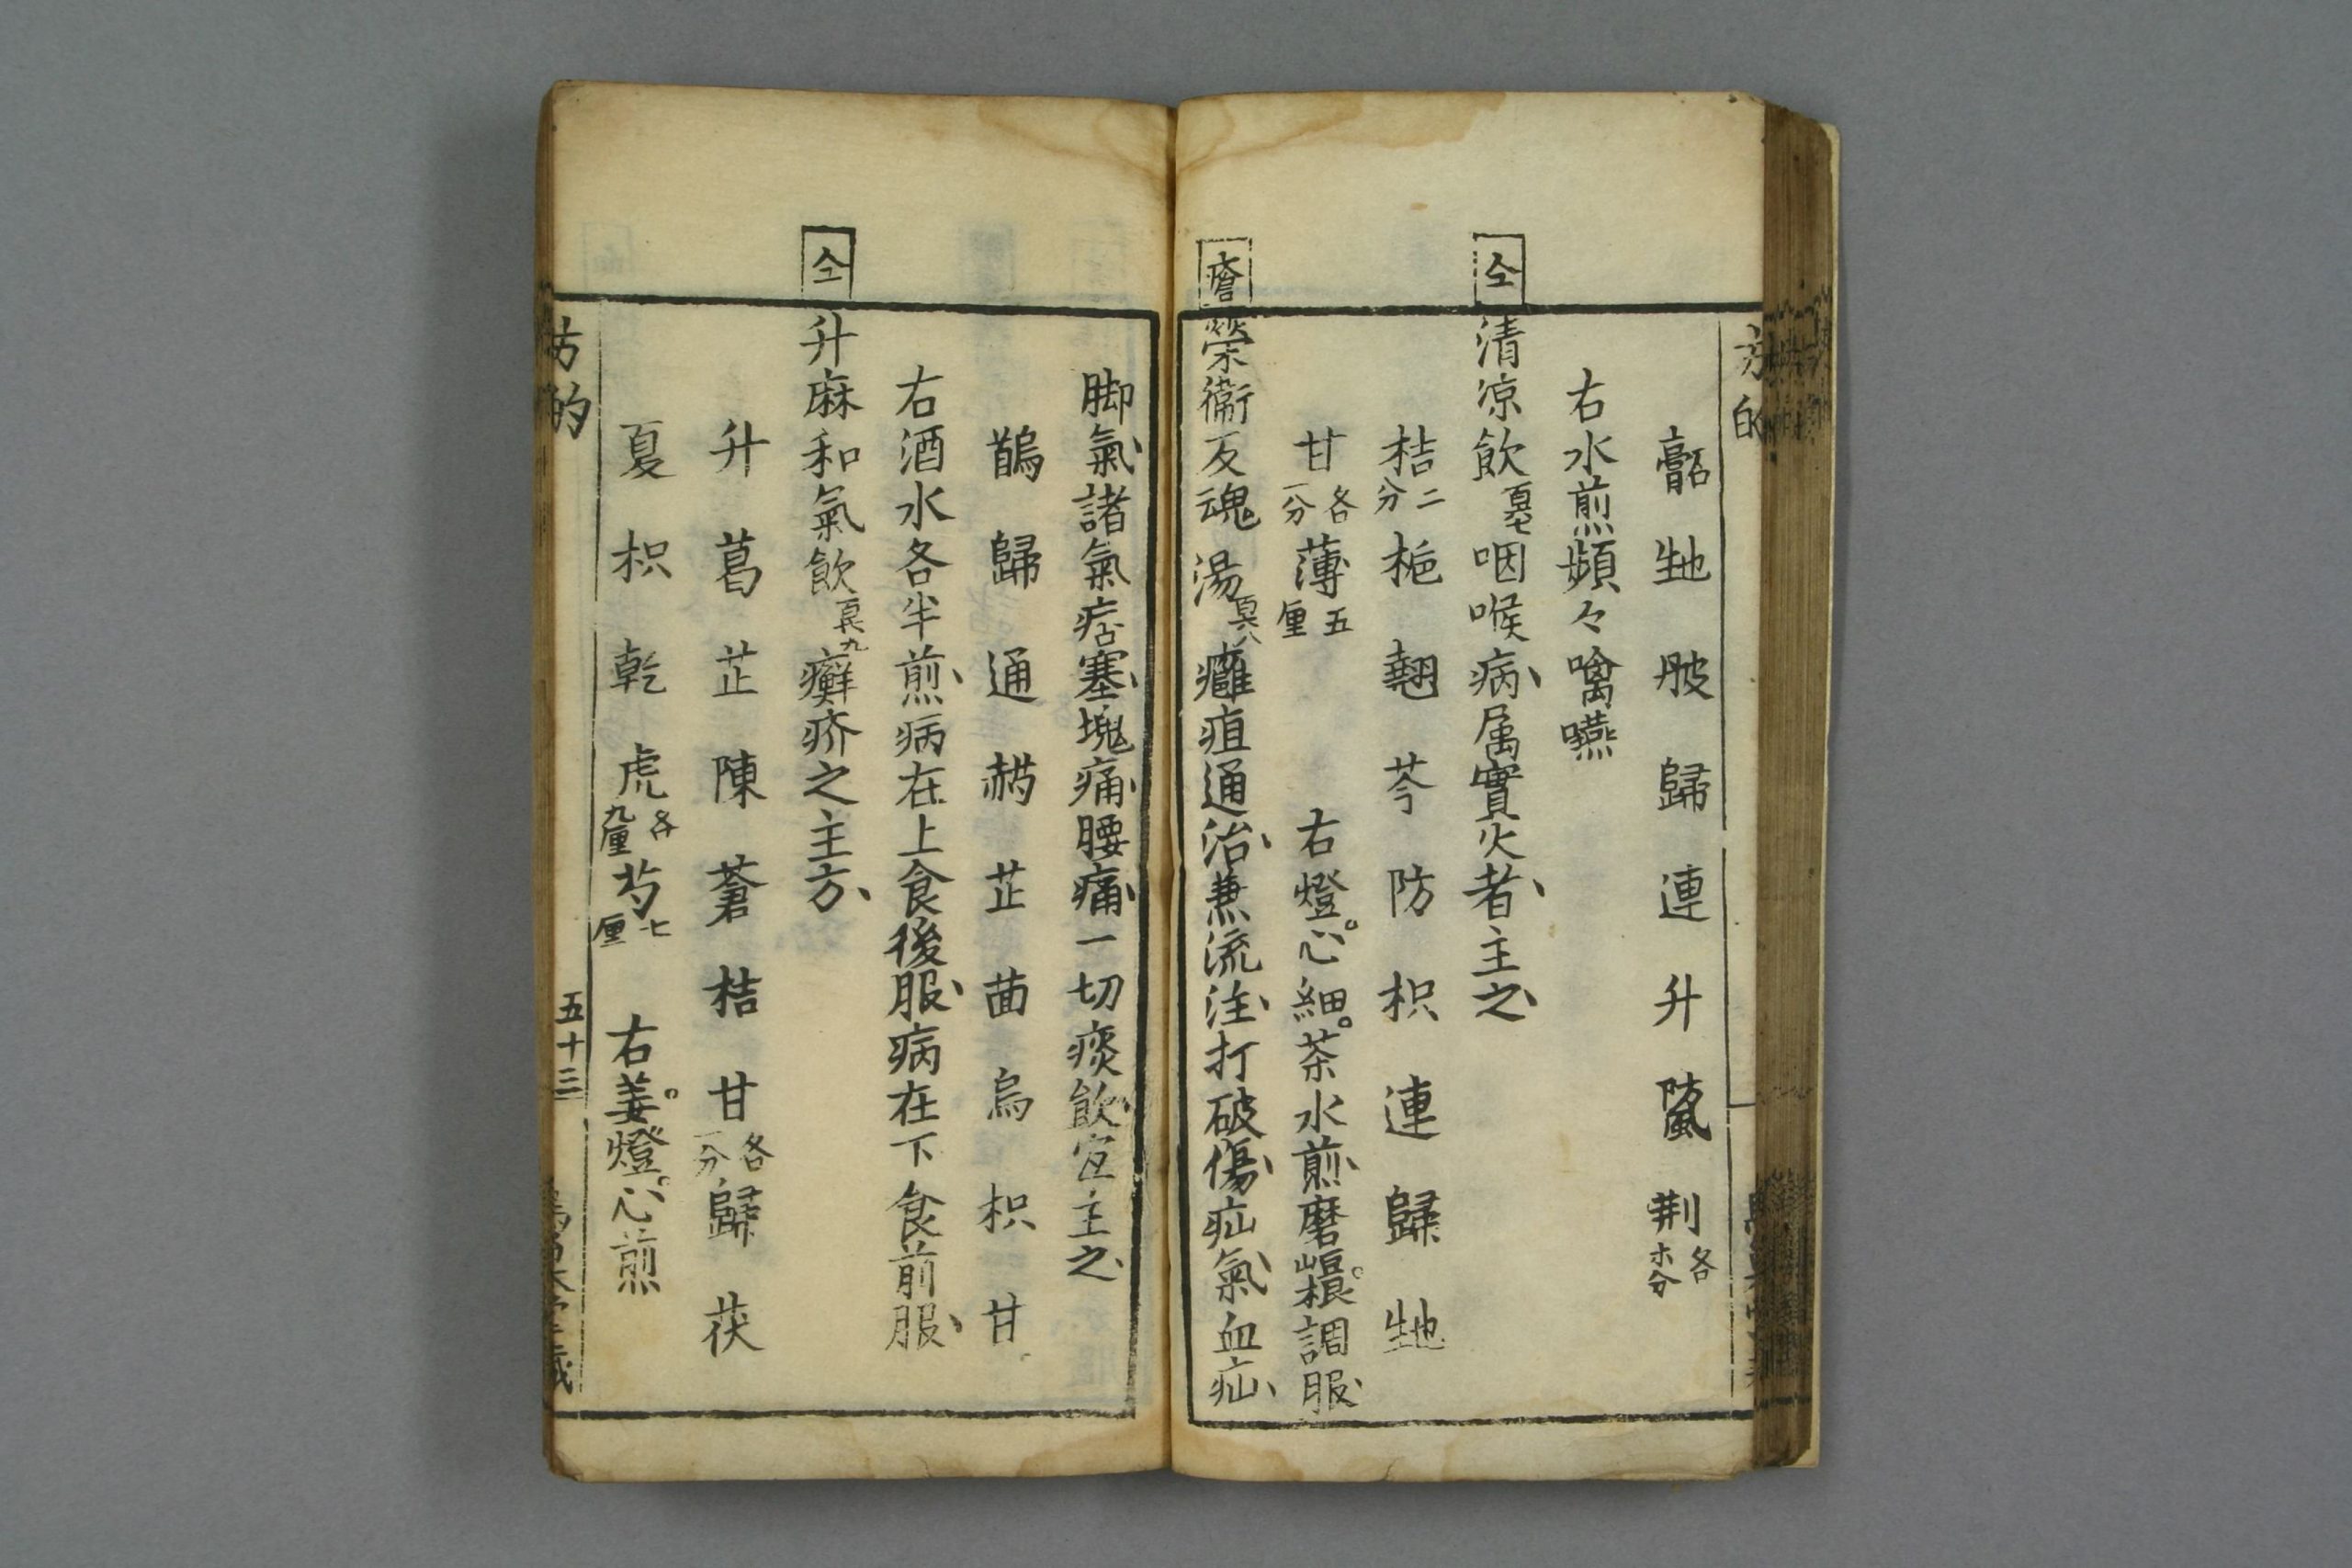 方的
生地 歸 連 升 荆各
右水煎頻々噙嚥
仝
清凉飲 咽喉病属實火者主之
桔二分 梔 翹 芩 防 枳 連 歸 生地
甘各一分 薄五厘 右燈心細茶水煎磨 調服
瘡
榮衞反魂湯 癰疽通治兼流注打破傷疝氣血疝
脚氣諸氣痞塞塊痛腰痛一切痰飲宜主之
歸 通 芍 芷 茴 烏 枳 甘
右酒水各半煎病在上食後服病在下食前服
仝
升麻和氣飲 癬疥之主方
升 葛 芷 陳 蒼 桔 甘各一分 歸 茯
夏 枳 乾 虎各九厘 芍七厘 右姜燈心煎
方的
五十三